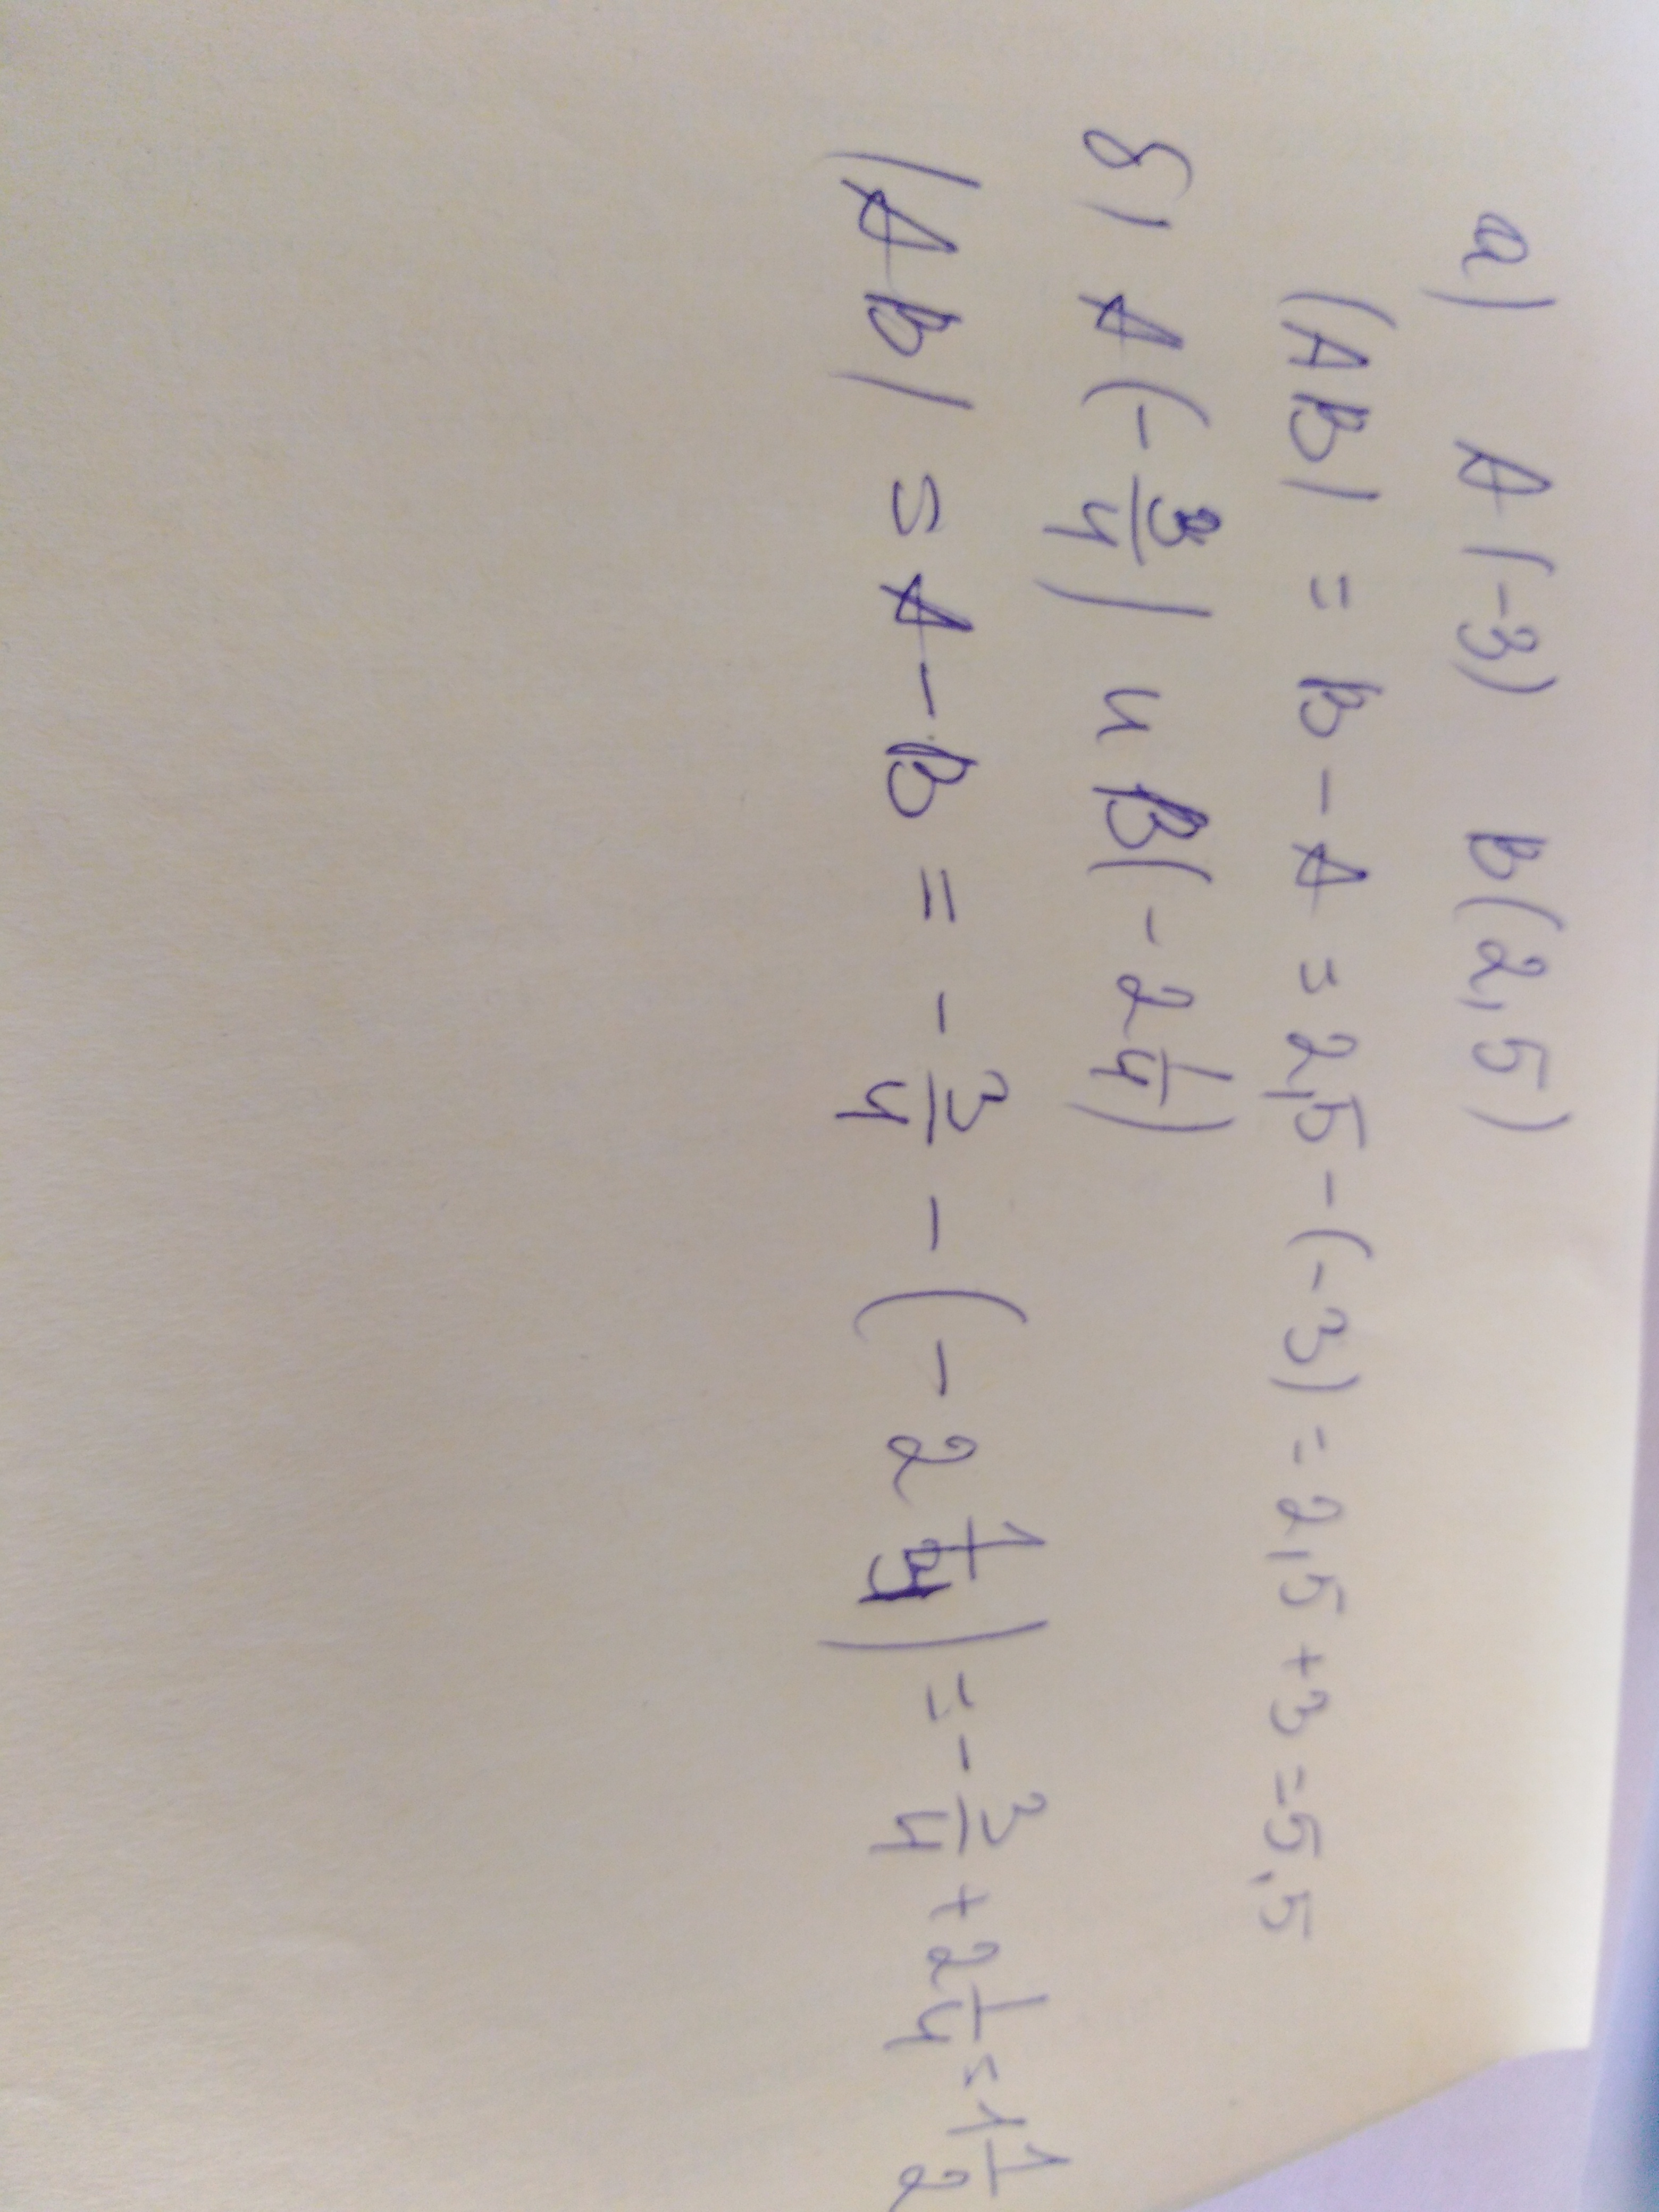 а) A(-3) B(2,5)
|AB| = B - A = 2,5 - (-3) = 2,5 + 3 = 5,5
б) A(-3/4) и B(-2 1/4)
|AB| = A - B = -3/4 - (-2 1/4) = -3/4 + 2 1/4 = 1 1/2